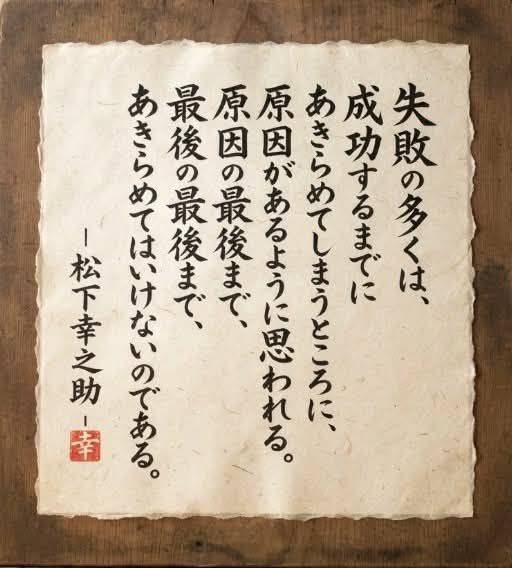 失敗の多くは、
成功するまでに
あきらめてしまうところに、
原因があるように思われる。
原因の最後まで、
最後の最後まで、
あきらめてはいけないのである。
－松下幸之助－
幸